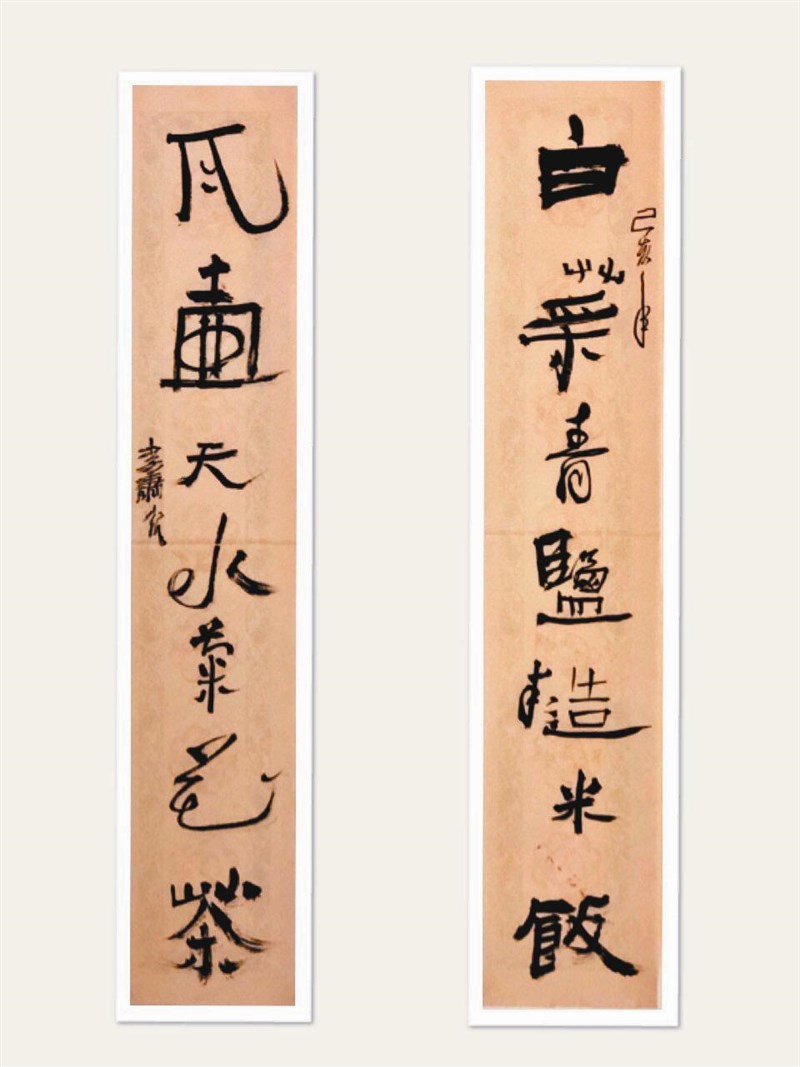 白菜青鹽糙米飯
己亥年
瓦壺天水菊花茶